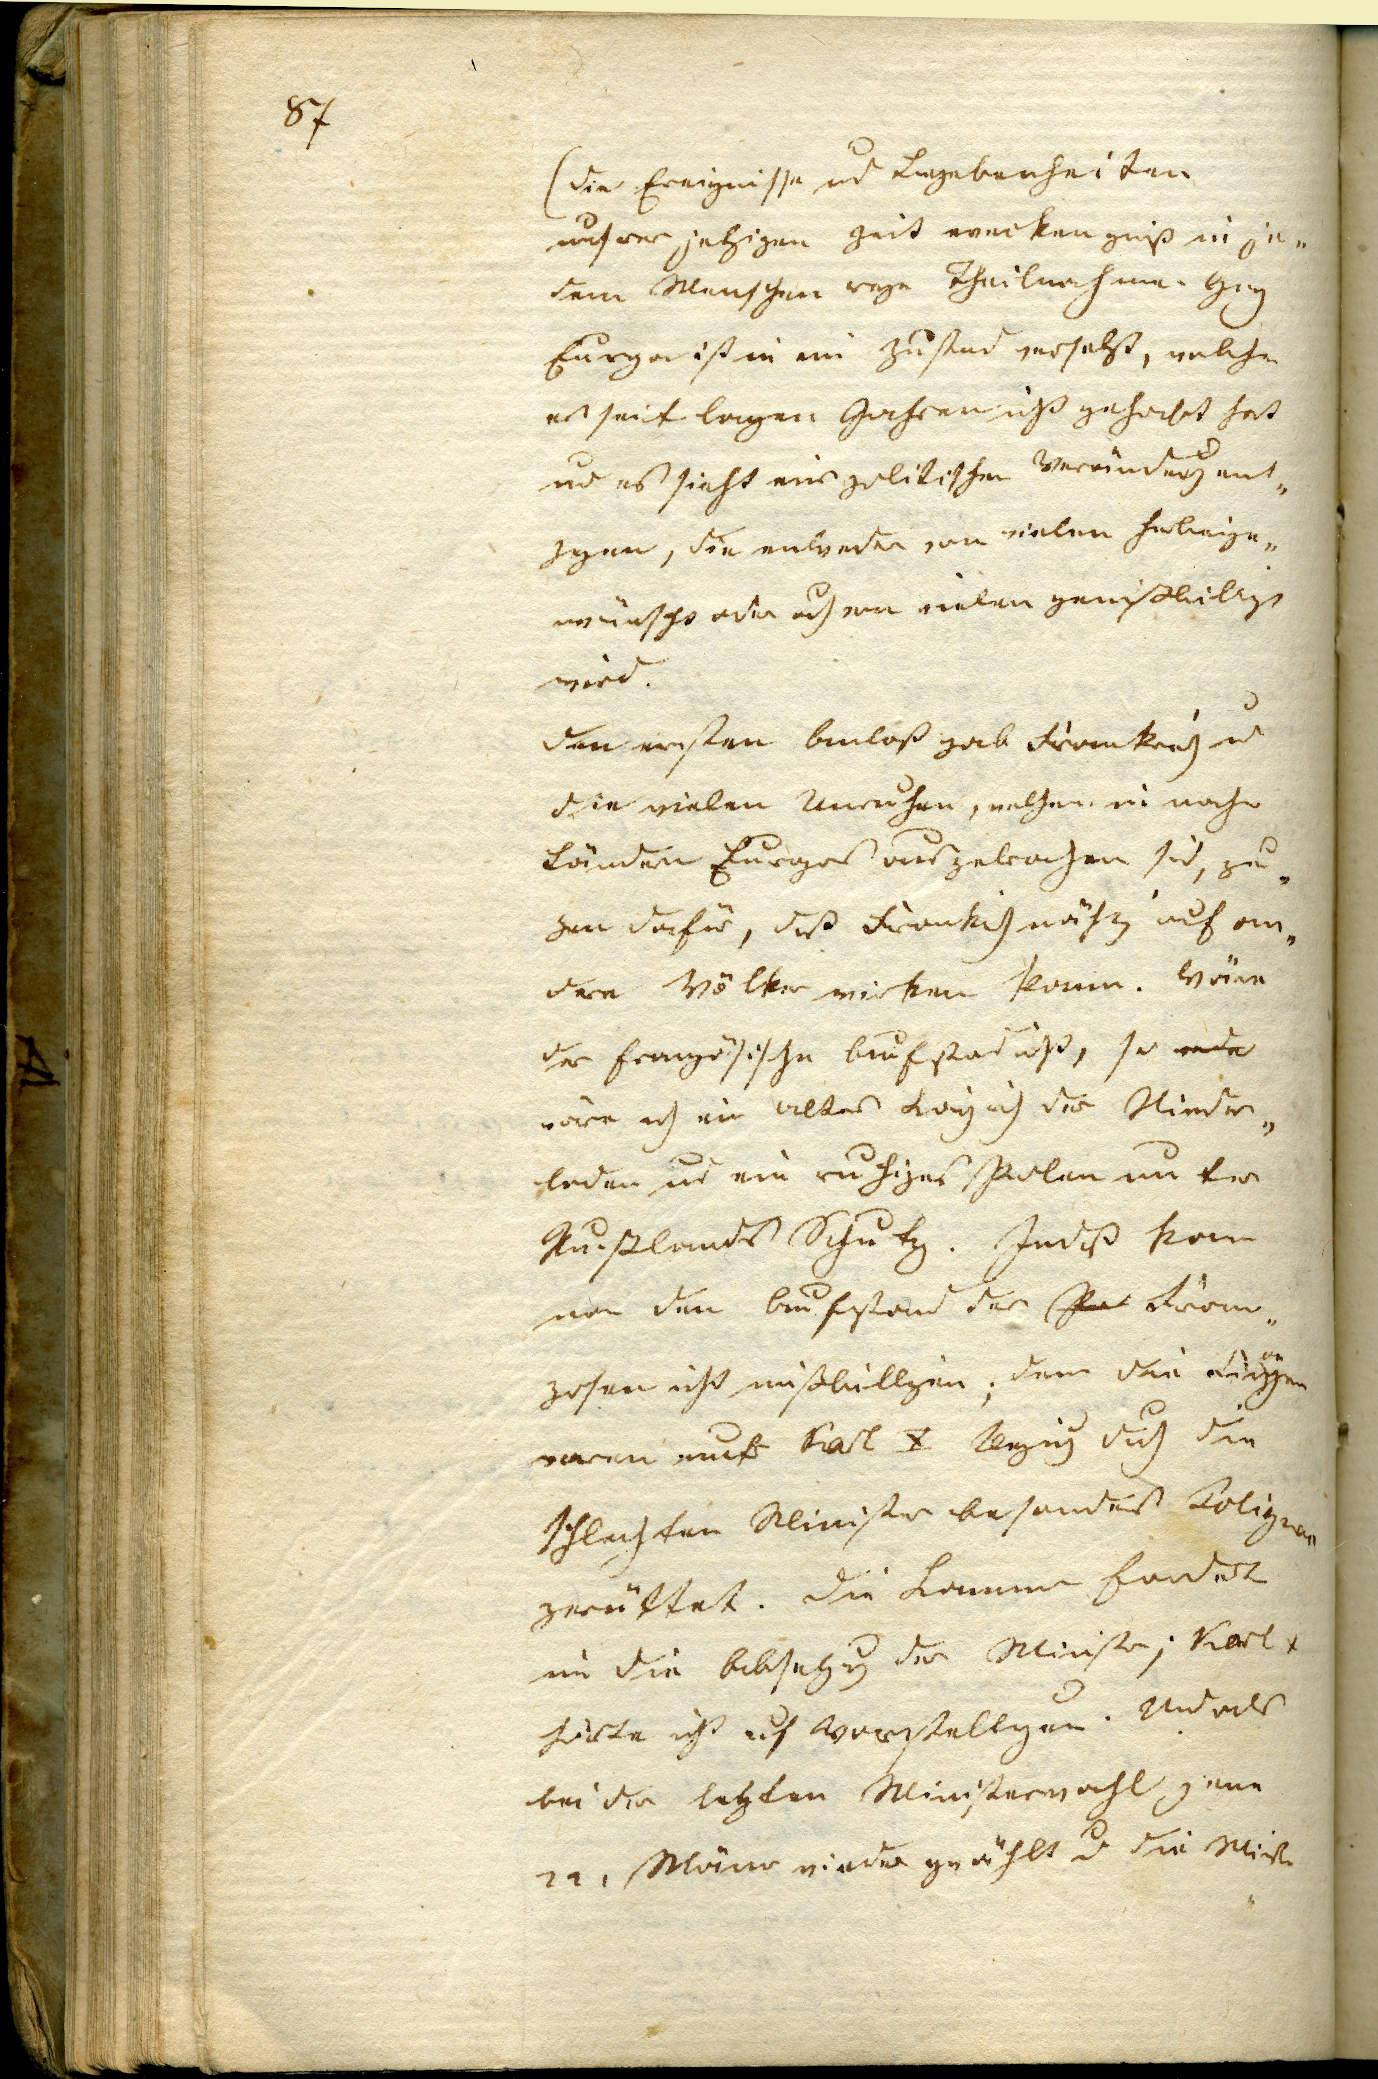 87
(die Ereignisse ud Begebenheiten
unsrer jetzigen Zeit erwecken gwiß in je„
dem Menschen rege Theilnahme. Gz
Europa ist in ein Zustad versetzt, welchen
er seit langen Jahren nicht gehabt hat
ud es sieht einr politischen Verändrug ent„
gegen, die entweder von vielen herbeige„
wünscht oder och von vielen gemißbilligt
wird.
Den ersten Anlaß gab Frankreich ud
die vielen Unruhen, welche in
Ländern Europas ausgebrochen sid, zeu„
gen dafür, daß Frankreich mächtig auf an„
dere Völker wirken kann. Wäre
der französische Aufstad nicht, so
wäre noch ein altes Königreich der Nieder„
landen ud ein ruhiges Polen unter
Rußlands Schutz. Indeß kann
man den Aufstand der Fran„
zosen nicht mißbilligen; denn die
waren unter Karl X Regirung durch die
schlechten Minister besonders Polignac
zerüttet. Die Kammer fordert
nun die Absetzug der Minister; Karl X
hörte nicht auf Vorstellgen. Und als
bei der letzten Ministerwahl jene
221 Männer wieder gewählt ud die